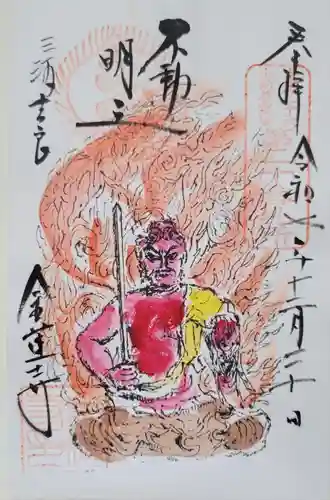 奉拝
令和七年十二月二十日
不動
明王
三河吉良
金蓮寺